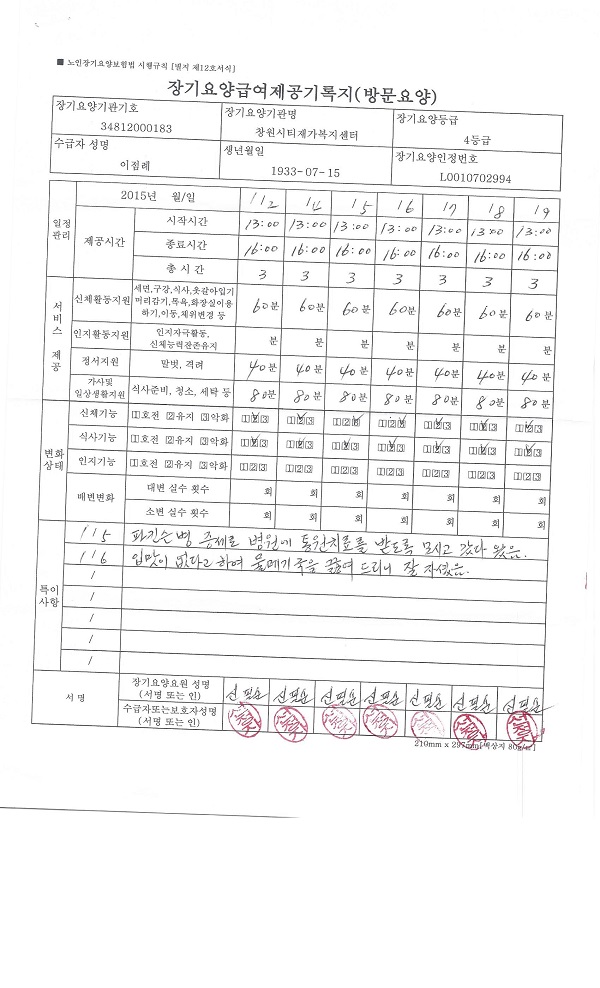 ■ 노인장기요양보험법 시행규칙 [별지 제12호서식]
장기요양급여제공기록지(방문요양)
장기요양기관기호 장기요양기관명 장기요양등급
34812000183 창원시티재가복지센터 4등급
수급자 성명 생년월일 장기요양인정번호
이점례 1933-07-15 L0010702994
일정관리 2015년 월/일 1/2 1/4 1/5 1/6 1/7 1/8 1/9
제공시간 시작시간 13:00 13:00 13:00 13:00 13:00 13:00 13:00
종료시간 16:00 16:00 16:00 16:00 16:00 16:00 16:00
총 시간 3 3 3 3 3 3 3
서비스 제공
신체활동지원 세면,구강,식사,옷갈아입기
머리감기,목욕,화장실이용
하기,이동,체위변경 등 60분 60분 60분 60분 60분 60분 60분
인지활동지원 인지자극활동,
신체능력잔존유지 분 분 분 분 분 분 분
정서지원 말벗, 격려 40분 40분 40분 40분 40분 40분 40분
가사및
일상생활지원 식사준비, 청소, 세탁 등 80분 80분 80분 80분 80분 80분 80분
변화상태
신체기능 1호전 2유지 3악화 123 123 123 123 123 123 123
식사기능 1호전 2유지 3악화 123 123 123 123 123 123 123
인지기능 1호전 2유지 3악화 123 123 123 123 123 123 123
배변변화 대변 실수 횟수 회 회 회 회 회 회 회
소변 실수 횟수 회 회 회 회 회 회 회
특이사항
1/5 파킨슨병 문제로 병원에 통원치료를 받도록 모시고 갔다 왔음.
1/6 입맛이 없다고 하여 물메기 죽을 끓여 드리니 잘 자셨음.
/
/
/
/
서명 장기요양요원 성명
(서명 또는 인) 신필순 신필순 신필순 신필순 신필순 신필순 신필순
수급자또는보호자성명
(서명 또는 인)
210mm x 297mm[백상지 80g/㎡]